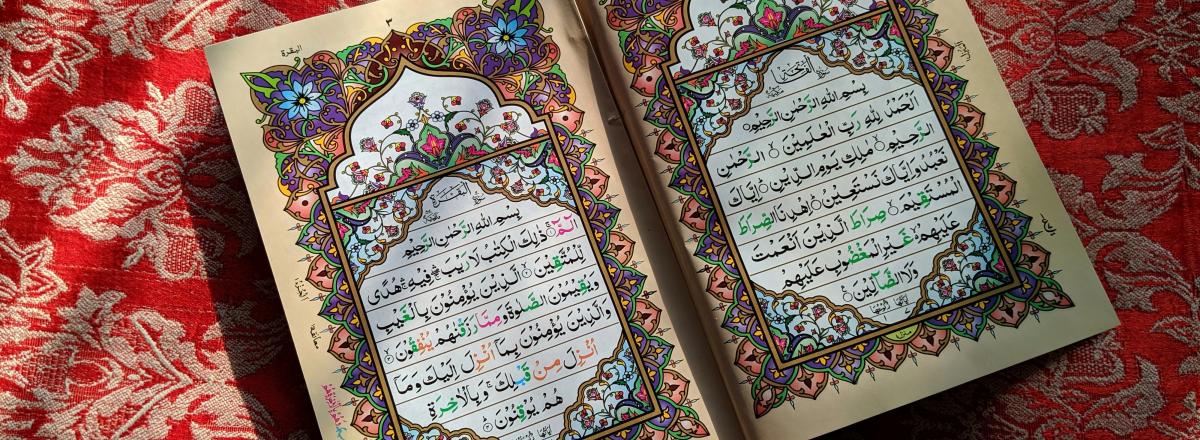 بِسْمِ اللهِ الرَّحْمٰنِ الرَّحِيْمِ
اَلْحَمْدُ لِلّٰهِ رَبِّ الْعٰلَمِيْنَ ۙ الرَّحْمٰنِ
الرَّحِيْمِ ۙ مٰلِكِ يَوْمِ الدِّيْنِ ۝ اِيَّاكَ
نَعْبُدُ وَاِيَّاكَ نَسْتَعِيْنُ ۝ اِهْدِنَا الصِّرَاطَ
الْمُسْتَقِيْمَ ۙ صِرَاطَ الَّذِيْنَ اَنْعَمْتَ
عَلَيْهِمْ ۙ غَيْرِ الْمَغْضُوْبِ عَلَيْهِمْ
وَلَا الضَّآلِّيْنَ ۝
البقرة
٣
الْبَقَرَة
بِسْمِ اللهِ الرَّحْمٰنِ الرَّحِيْمِ
الٓمّٓ ۝ ذٰلِكَ الْكِتٰبُ لَا رَيْبَ فِيْهِ هُدًى
لِّلْمُتَّقِيْنَ ۙ الَّذِيْنَ يُؤْمِنُوْنَ بِالْغَيْبِ
وَيُقِيْمُوْنَ الصَّلٰوةَ وَمِمَّا رَزَقْنٰهُمْ يُنْفِقُوْنَ ۙ
وَالَّذِيْنَ يُؤْمِنُوْنَ بِمَآ اُنْزِلَ اِلَيْكَ وَمَآ
اُنْزِلَ مِنْ قَبْلِكَ ۚ وَبِالْاٰخِرَةِ
هُمْ يُوْقِنُوْنَ ۝